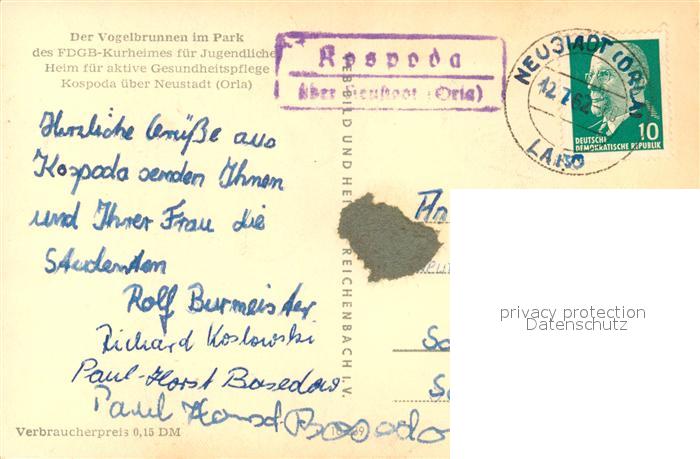 Der Vogelbrunnen im Park
des FDGB-Kurheimes für Jugendliche
Heim für aktive Gesundheitspflege
Kospoda über Neustadt (Orla)
Kospoda
über Neustadt (Orla)
NEUSTADT (ORLA)
12.7.62
DEUTSCHE
DEMOKRATISCHE REPUBLIK
10
Herzliche Grüße aus
Kospoda senden Ihnen
und Ihrer Frau die
Studenten
Rolf Burmeister
Richard Koslowski
Paul-Horst Basedow
Paul
BILD UND
REICHENBACH I. V.
An
privacy protection
Datenschutz
Verbraucherpreis 0,15 DM